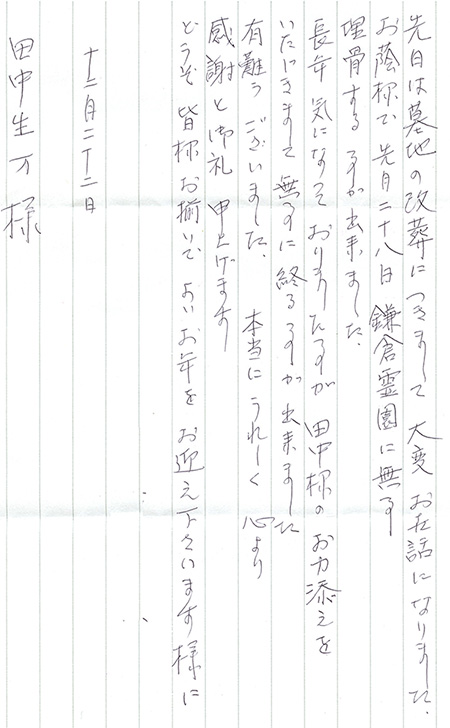 先日は墓地の改葬につきまして 大変 お世話になりました。
お蔭様で 先月二十八日 鎌倉霊園に無事
埋骨する事が出来ました。
長年 気になって おりました事が 田中様の お力添えを
いただきまして 無事に終る事が出来ました
有難う ございました。 本当にうれしく 心より
感謝と御礼 申上げます
どうぞ 皆様 お揃いで よいお年を お迎え下さいます様に
十二月二十二日
田中生 様